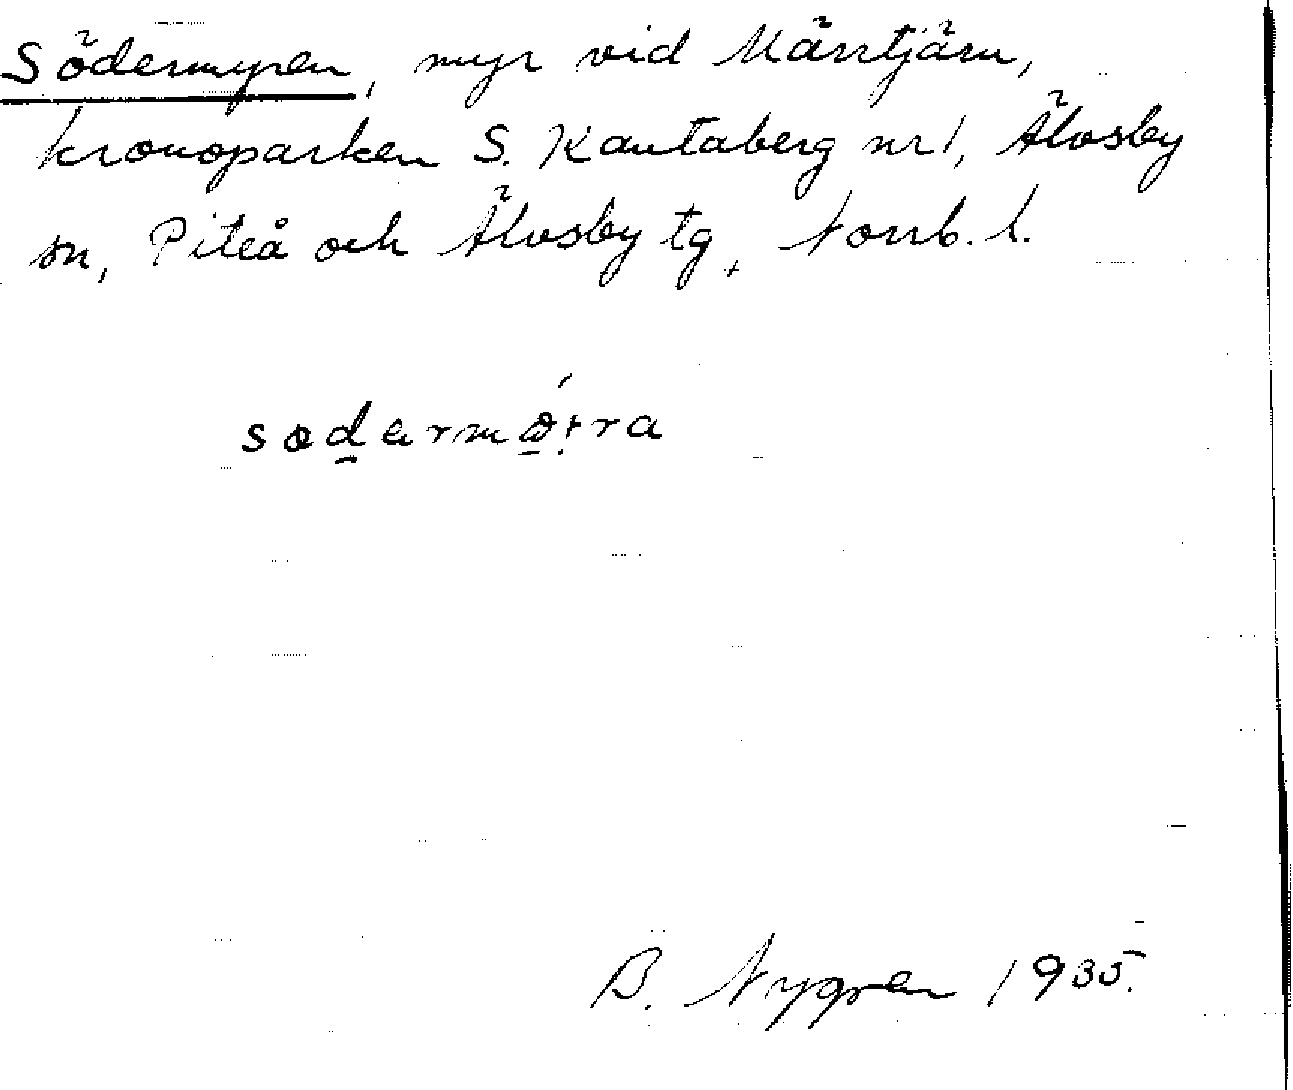 Södermyren, myr vid Märrtjärn,
kronoparken S. Kantaberg nr 1, Älvsby
sn, Piteå och Älvsby tg, Norrb. l.
B. Nygren 1935.